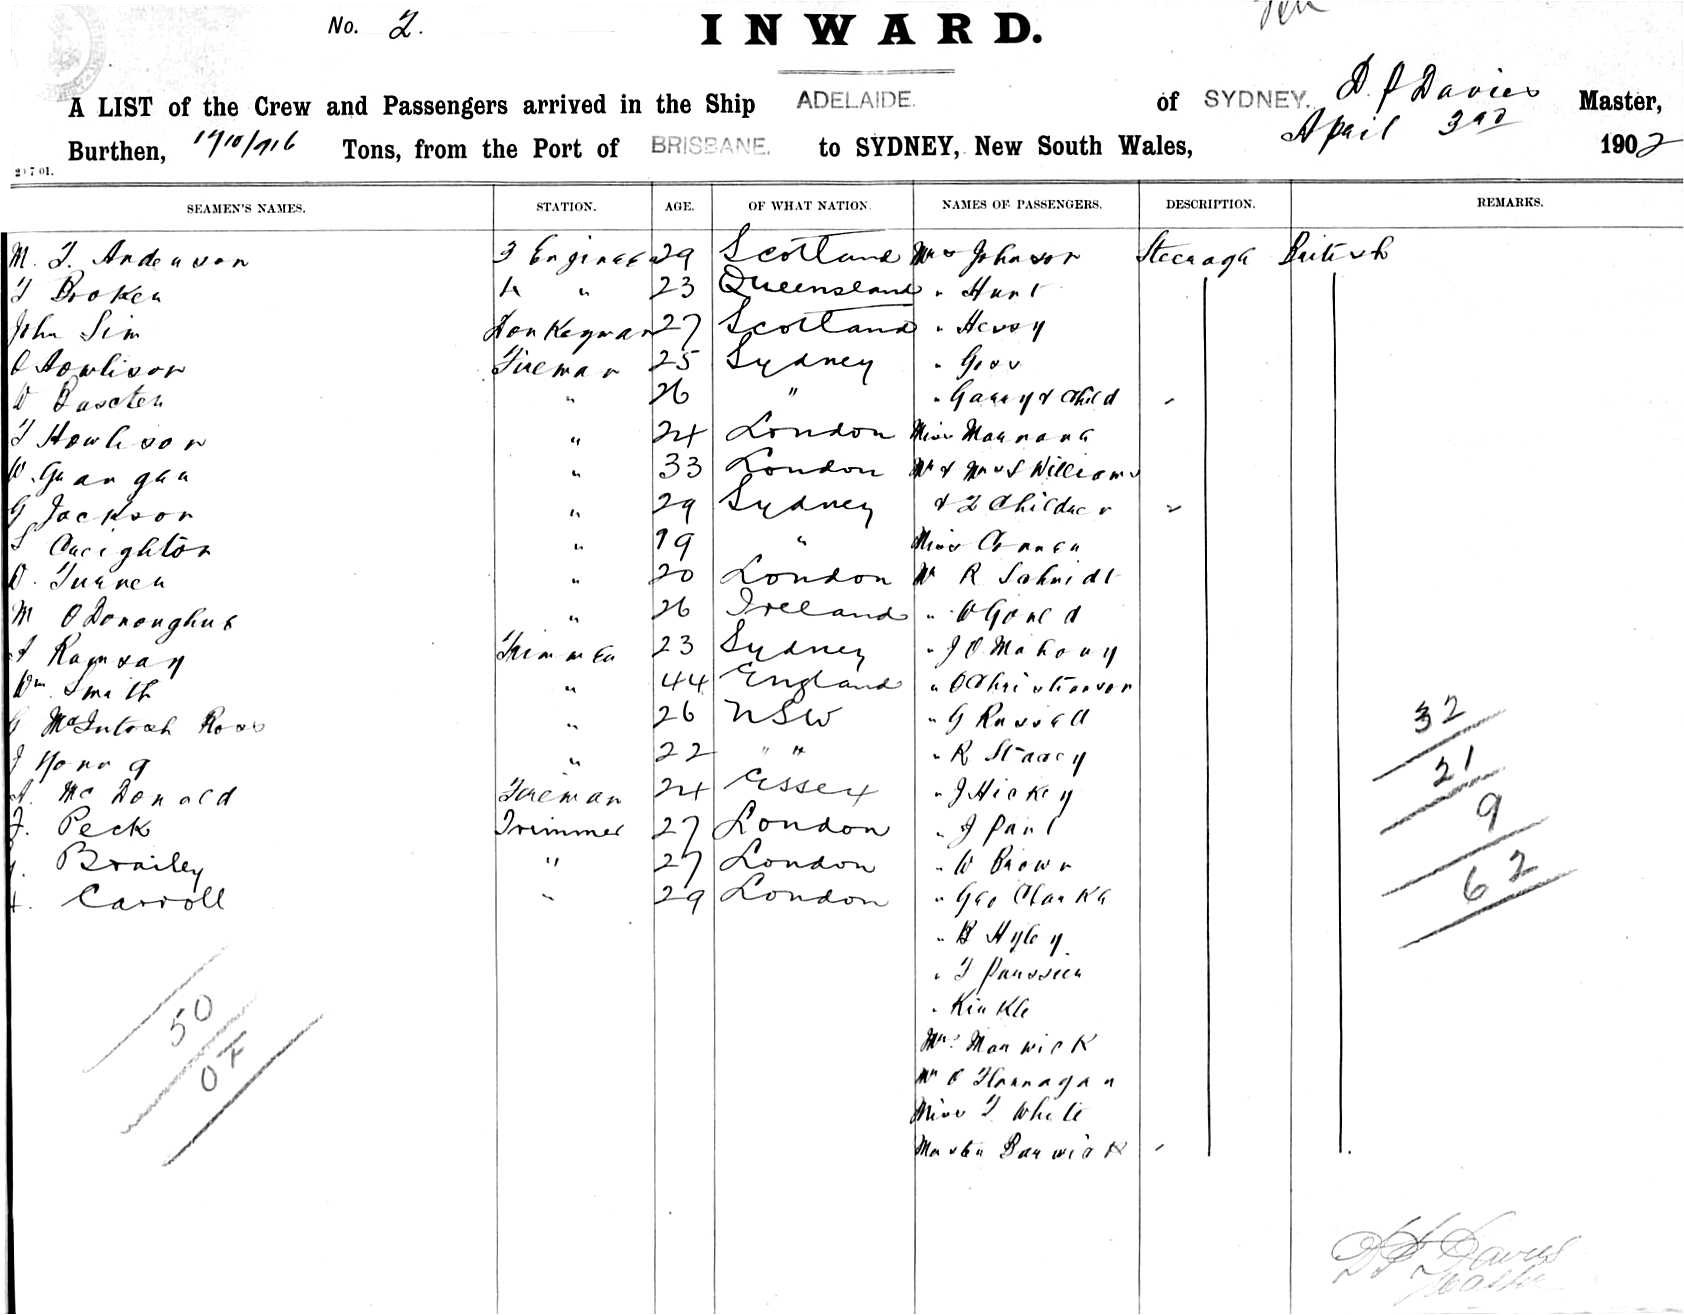 No. 2.
INWARD.
A LIST of the Crew and Passengers arrived in the Ship ADELAIDE. of SYDNEY. D. J Davies Master,
Burthen, Tons, from the Port of BRISBANE. to SYDNEY, New South Wales, April 3rd 1902
SEAMEN'S NAMES. STATION. AGE. OF WHAT NATION NAMES OF PASSENGERS. DESCRIPTION. REMARKS.
M. J. Anderson 3 Engineer 29 Scotland Mrs Johnson Steerage British
" 23 Queensland " Hunt
John Sim Donkeyman 27 Scotland " Hervey
Howlison Fireman 25 Sydney "
Baxter " 26 " " Garry & Child "
Howlison " 24 London Miss
" 33 London Mr & Mrs S Williams
G Jackson " 29 Sydney & 2 Children "
S Creighton " 19 " Miss
D. Turner " 20 London Mr R Schmidt
M O'Donoghue " 26 Ireland " W
A Ramsay Trimmer 23 Sydney " J O Mahony
Wm Smith " 44 England " Christianson
G McIntosh Ross " 26 NSW " G Russell
J " 22 " " " R Stacey
A. McDonald Fireman 24 Essex " J Hickey
J. Peck Trimmer 27 London " J
Brailey " 27 London " W Brown
Carroll " 29 London " Geo Clarke
" B Hyley
"
" Kinkle
Mrs Marwick
Mr Flannagan
Miss T White
Master Barwick "
32
21
9
62
50
D J Davies
Master